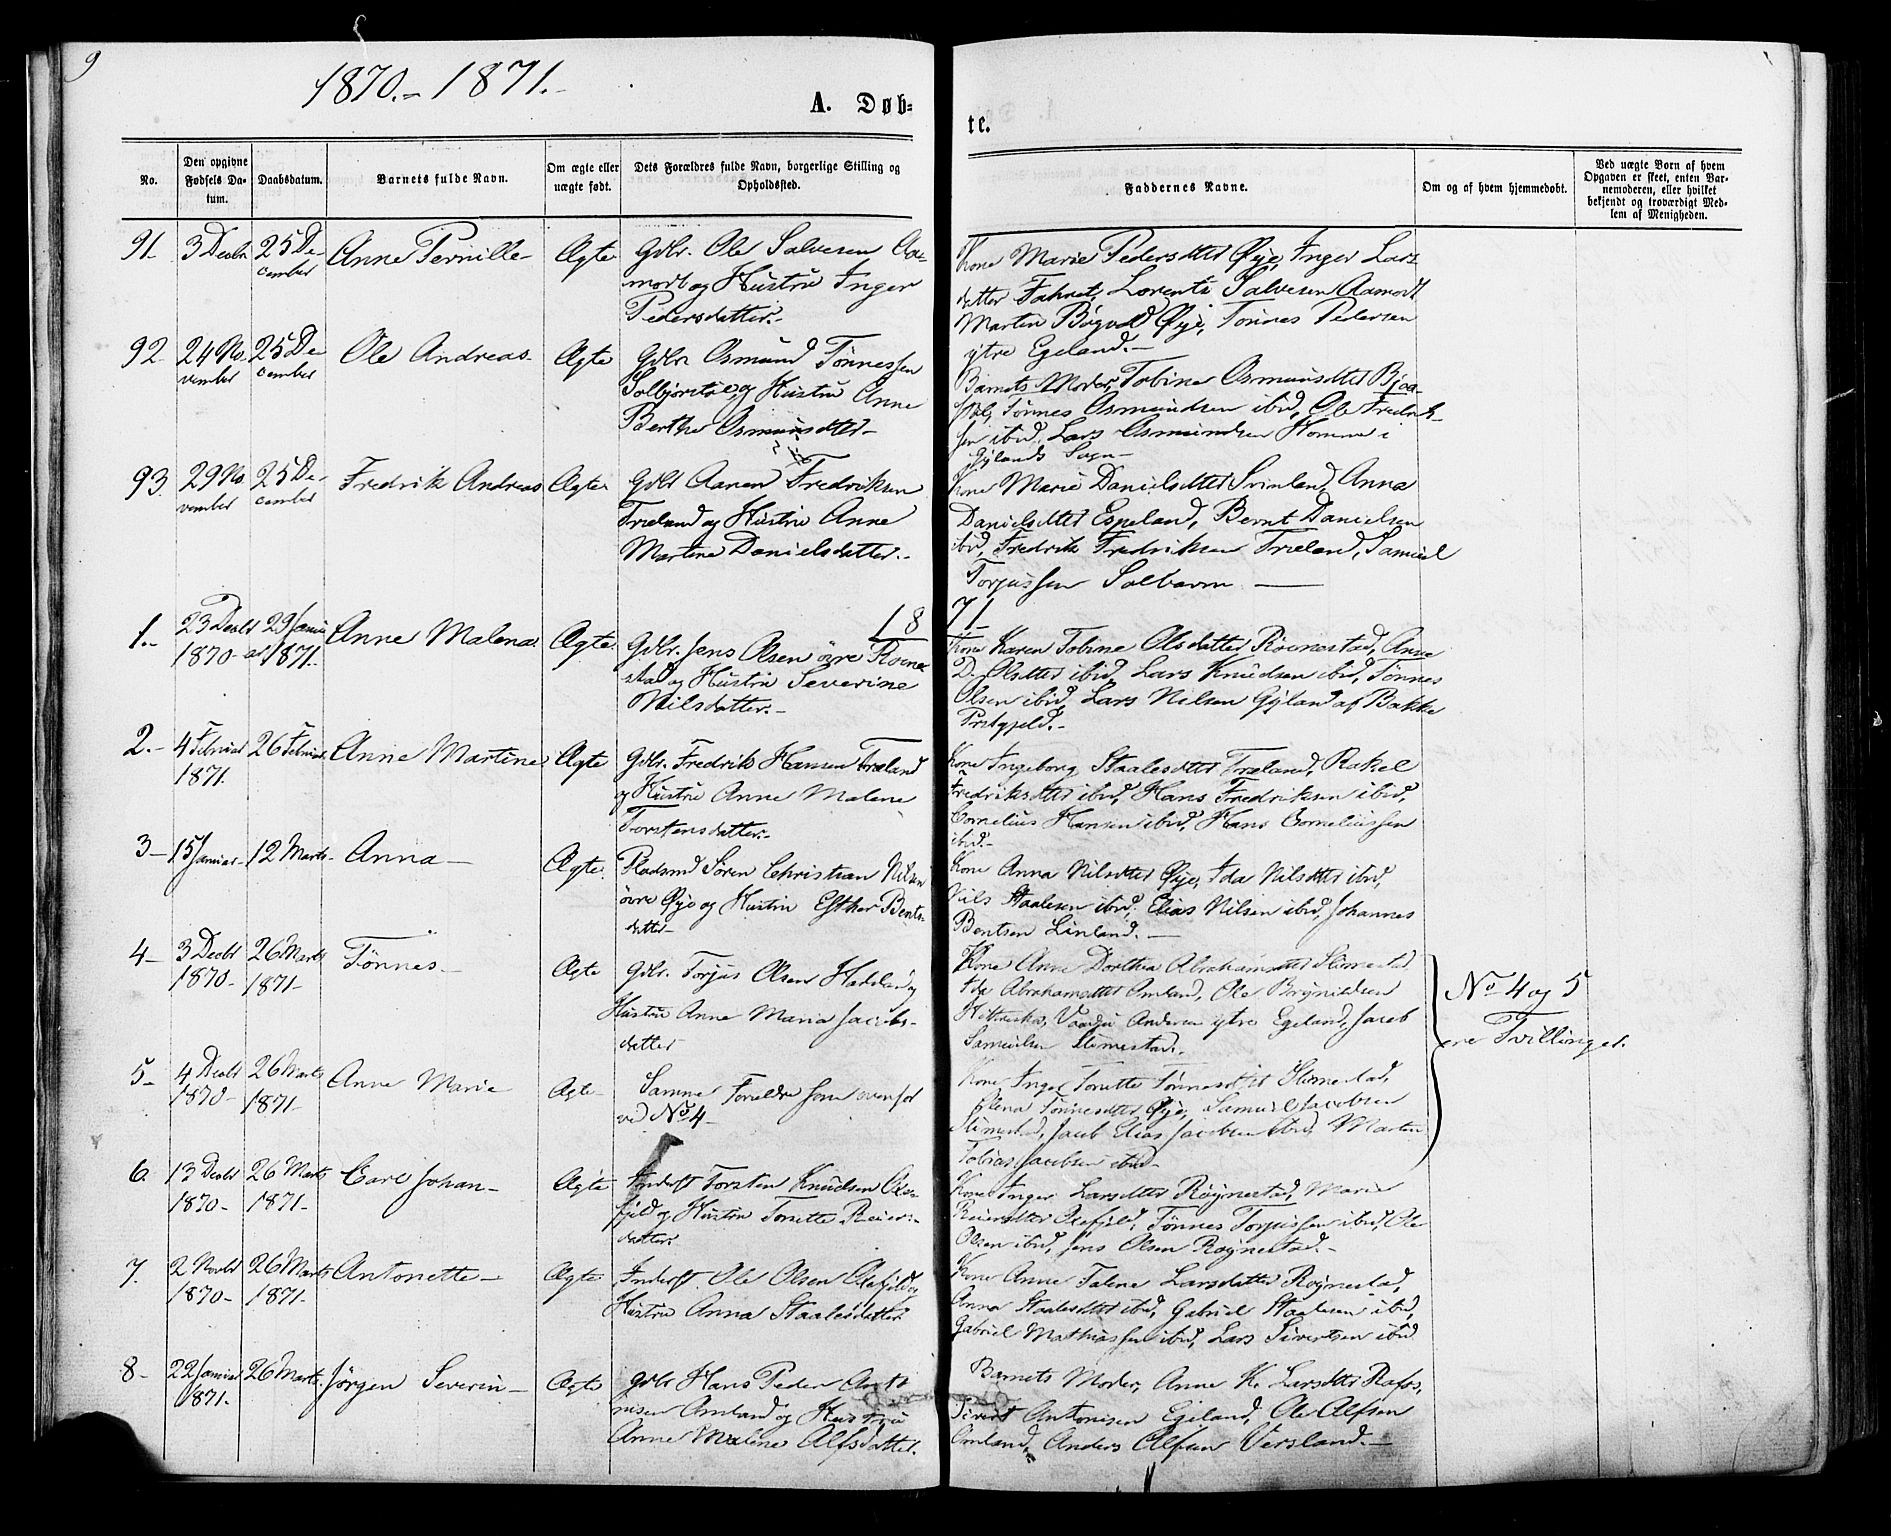 9
1870.-1871.
A. Døb-
te.
No.
Den opgivne
Fødsels Da-
tum.
Daabsdatum.
Barnets fulde Navn.
Om ægte eller
uægte født.
Dets Forældres fulde Navn, borgerlige Stilling og
Opholdssted.
Faddernes Navne.
Om og af hvem hjemmedøbt.
Ved uægte Børn af hvem
Opgaven er skeet, enten Bar-
nemoderen, eller hvilket
bekjendt og troværdigt Med-
lem af Menigheden.
91- 3 Decbr 25 De-
cember
Anne Pernille-
Ægte
Gdbr. Ole Salvesen Aa-
modt og Hustru Inger
Pedersdatter.-
Kone Marie Pedersdtter Øye, Inger Lars-
datter Fahret, Lorents Salvesen Aamodt
Martin Øye, Tønnes Pedersen
ytre Egeland.-
92- 24 No-
vember
25 De-
cember
Ole Andreas-
Ægte
Gdbr Osmund Tønnessen
og Hustru Anne
Berthe Osmundsdtter-
Barnets Moder, Tobine Osmundsdtter
Tønnes Osmundsen ibid, Ole Fredrik-
sen ibid, Lars Osmundsen Homme i
Gylands Sogn-
93. 29 No-
vember
25 De-
cember
Fredrik Andreas
Ægte
Gdbr Aanen Fredriksen
Træland og Hustru Anne
Martine Danielsdatter.-
Kone Marie Danielsdtter Svinland, Anna
Danielsdtter Espeland, Bernt Danielsen
ibid, Fredrik Fredriksen Træland, Samuel
Torjussen
1871-
1.- 23 Decbr
1870-
29 Januar
1871-
Anne Malena
Ægte
Gdbr. Jens Olsen øvre Røine-
stad og Hustru Severine
Nilsdatter.-
Kone Karen Tobine Olsdatter Røinestad, Anne
D. Olsdtter ibid, Lars Knudsen ibid, Tønnes
Olsen ibid, Lars Nilsen Gyland af Bakke
Prstgjeld.-
2.- 4 Februar
1871.
26 Februar
Anne Martine
Ægte
Gdbr. Fredrik Hansen Træland
og Hustru Anne Malene
Torstensdatter.-
Kone Ingeborg Staalesdtter Træland, Rakel
Fredriksdtter ibid, Hans Fredriksen ibid,
Cornelius Hansen ibid, Hans Corneliussen
ibid.-
3- 15 Januar- 12 Marts- Anna-
Ægte.
Pladsmd Søren Christian Nilsen
øvre Øye og Hustru Esther Bents-
datter-
Kone Anna Nilsdtter Øye, Ida Nilsdtter ibid,
Nils Staalesen ibid, Elias Nilsen ibid, Johannes
Bentsen Linland.-
4- 3 Decbr
1870-
26 Marts
1871-
Tønnes-
Ægte
Gdbr. Torjus Olsen og
Hustru Anne Maria Jacobs-
datter
Kone Anne Dorthea Abrahamsdtter Slimestad
Ida Abrahamsdtter Omland, Ole Brynildsen
Andersen ytre Egeland, Jacob
Samuelsen Slimestad.-
No 4 og 5
ere Tvillinger.
5- 4 Decbr
1870-
26 Marts
1871-
Anne Marie
Ægte-
Samme Forældre som ovenfor
ved No 4-
Kone Inger Tonette Tønnesdtter Slimestad,
Elena Tønnesdtter Øye, Samuel Jacobsen
Slimestad, Jacob Elias Jacobsen ibid, Martin
Tobias Jacobsen ibid-
6. 13 Decbr
1870-
26 Marts
1871-
Carl Johan-
Ægte
Inderst Torsten Knudsen Oxe-
fjeld og Hustru Tonette Reiers-
datter.
Kone Inger Larsdtter Røynestad, Marie
Reiersdtter Oxefjeld, Tønnes Torjussen ibid, Ole
Olsen ibid, Jens Olsen Røynestad.-
7. 2 Novbr
1870-
26 Marts
1871-
Antonette-
Ægte
Inderst Ole Olsen Oxefjeld og
Hustru Anna Staalesdatter.
Kone Anne Talene Larsdatter Røynestad,
Anna Staalesdtter ibid, Gabriel Staalesen ibid,
Gabriel Mathiassen ibid, Lars Sivertsen ibid
8- 22 Januar
1871.
26 Marts.
Jørgen Severin-
Ægte
Gdbr Hans Peder Anto-
nisen Omland og Hustru
Anne Malene Alfsdatter.
Barnets Moder, Anne K. Larsdtter Rafos,
Sivert Antonisen Egeland, Ole Alfsen
Omland, Anders Alfsen Versland.-